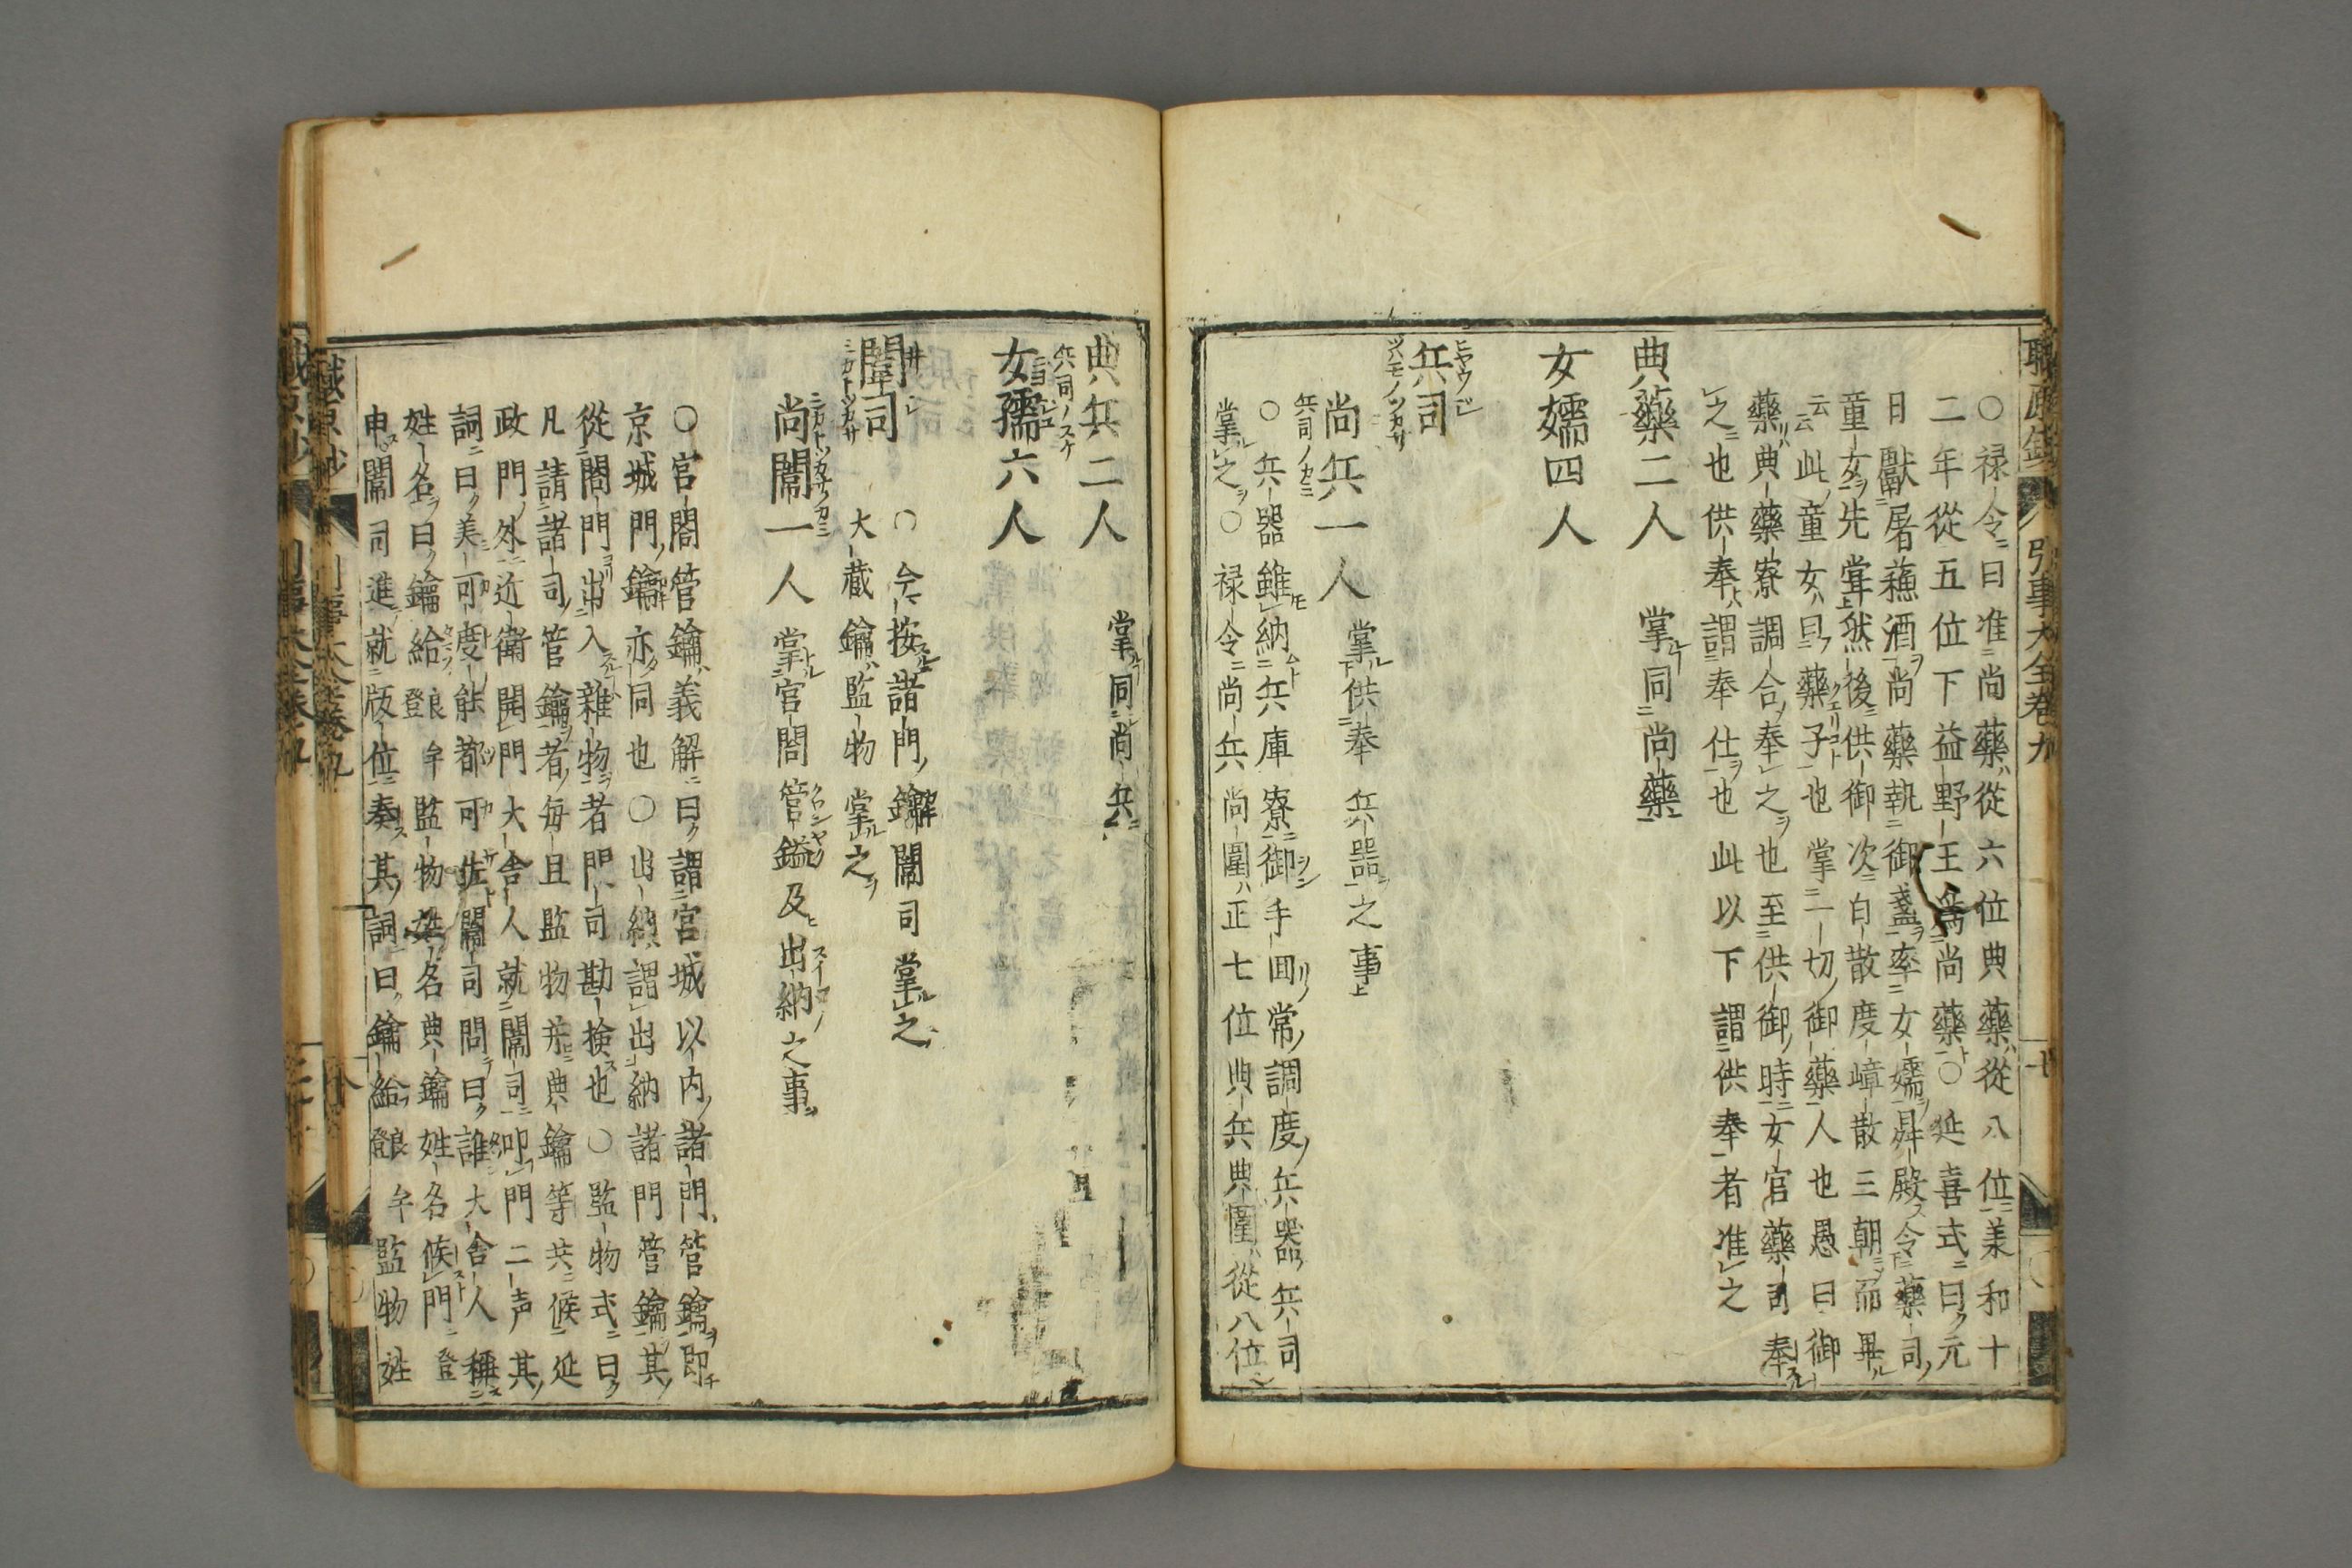 〇禄令曰准尚藥從六位典藥從八位美和十
二年從五位下益野王爲尚藥〇延喜式曰元
日獻屠蘓酒尚藥執御盞率女嬬昇殿令藥司
童女先甞然後供御次白散度嶂散三朝而畢
云云此童女曰藥子也掌一切御藥人也愚曰御
藥典藥寮調合奉之也至供御時女官藥司奉
之也供奉謂奉仕也此以下謂供奉者准之
典藥二人 掌同尚藥
女嬬四人
兵司
尚兵一人 掌供奉兵器之事
〇兵器雖納兵庫寮御手回常調度兵器兵司
掌之〇禄令尚兵尚闈正七位典兵典闈從八位
典兵二人 掌同尚兵
女孺六人
闈司
〇今按諸門鑰闈司掌之
大蔵鑰監物掌之
尚闈一人 掌宮閤管鎰及出納之事
〇宮閤管鑰義解曰謂宮城以内諸門管鑰即
京城門鑰亦同也〇出納謂出納諸門管鑰其
從閤門出入雜物者門司勘検也〇監物式曰
凡請諸司管鑰者毎旦監物并典鑰等共候延
政門外近衛開門大舎人就闈司叩門二声其
詞曰美可度能都可佐闈司問曰誰大舎人稱
姓名曰鑰給登良牟監物姓名典鑰姓名候門登
申闈司進就版位奏其詞曰鑰給登良牟監物姓
職原鈔 引事大全巻九